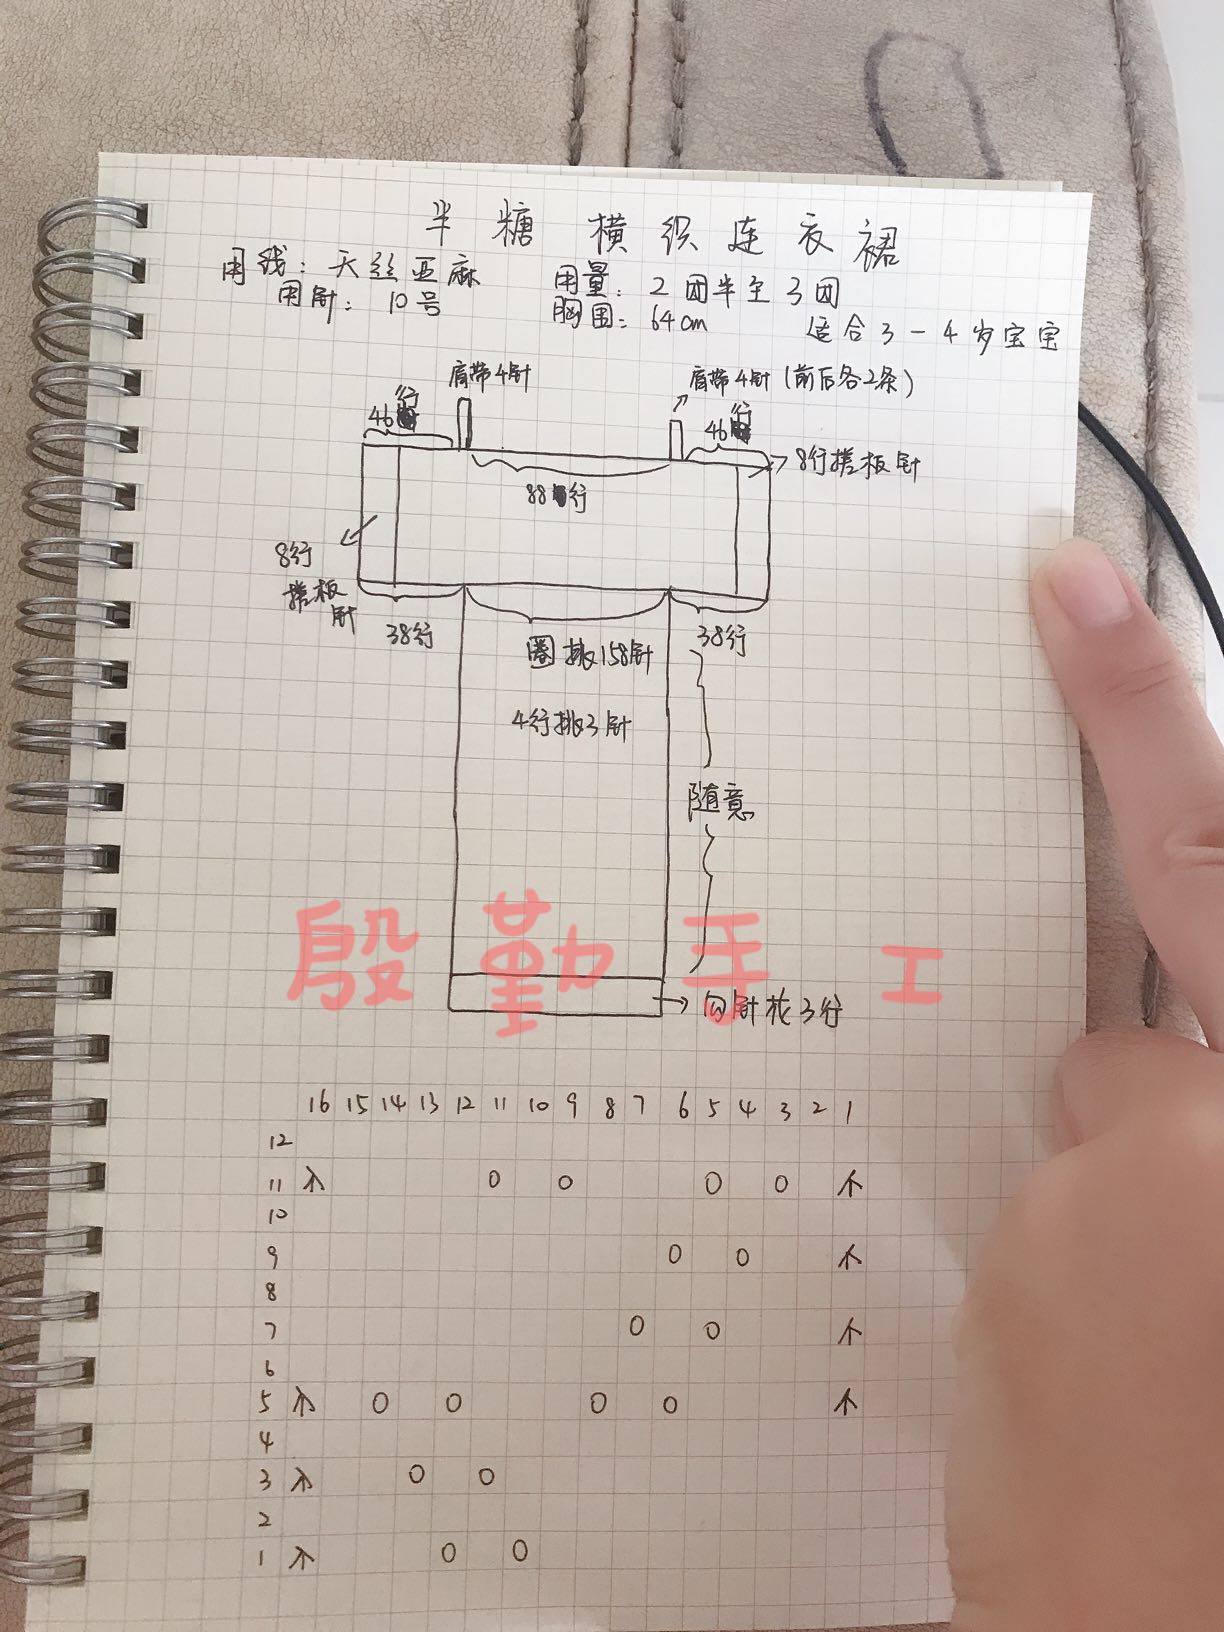 半糖 横织连衣裙
用线：天丝亚麻 用量：2团半至3团
用针：10号 胸围：64cm 适合3-4岁宝宝
肩带4针 肩带4针(前后各2条)
46行 46行
8行搓板针
88行
8行
搓板
针
38行 圈挑158针 38行
4行挑3针
随意
殷勤手工
勾针花3行
16 15 14 13 12 11 10 9 8 7 6 5 4 3 2 1
12
11 入 O O O O 人
10
9 O O 人
8
7 O O 人
6
5 入 O O O O 人
4
3 入 O O
2
1 入 O O